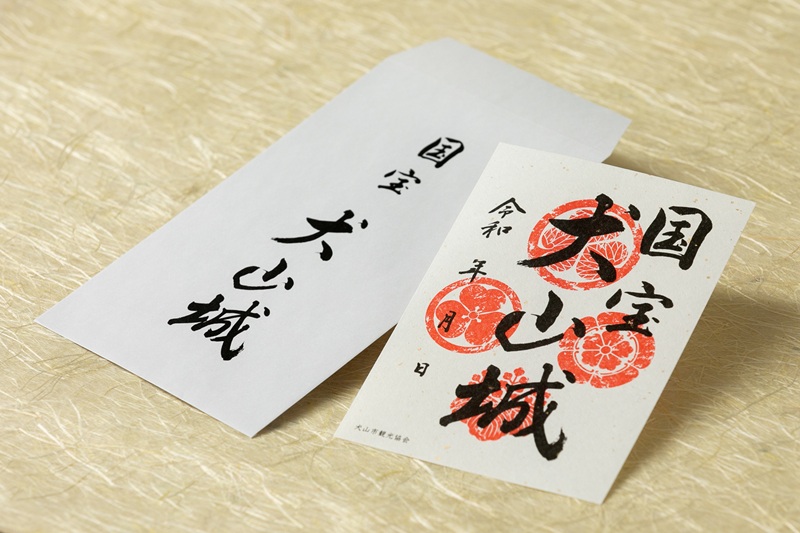 国宝
犬山城
国宝
犬山城
令和 年 月 日
犬山市観光協会